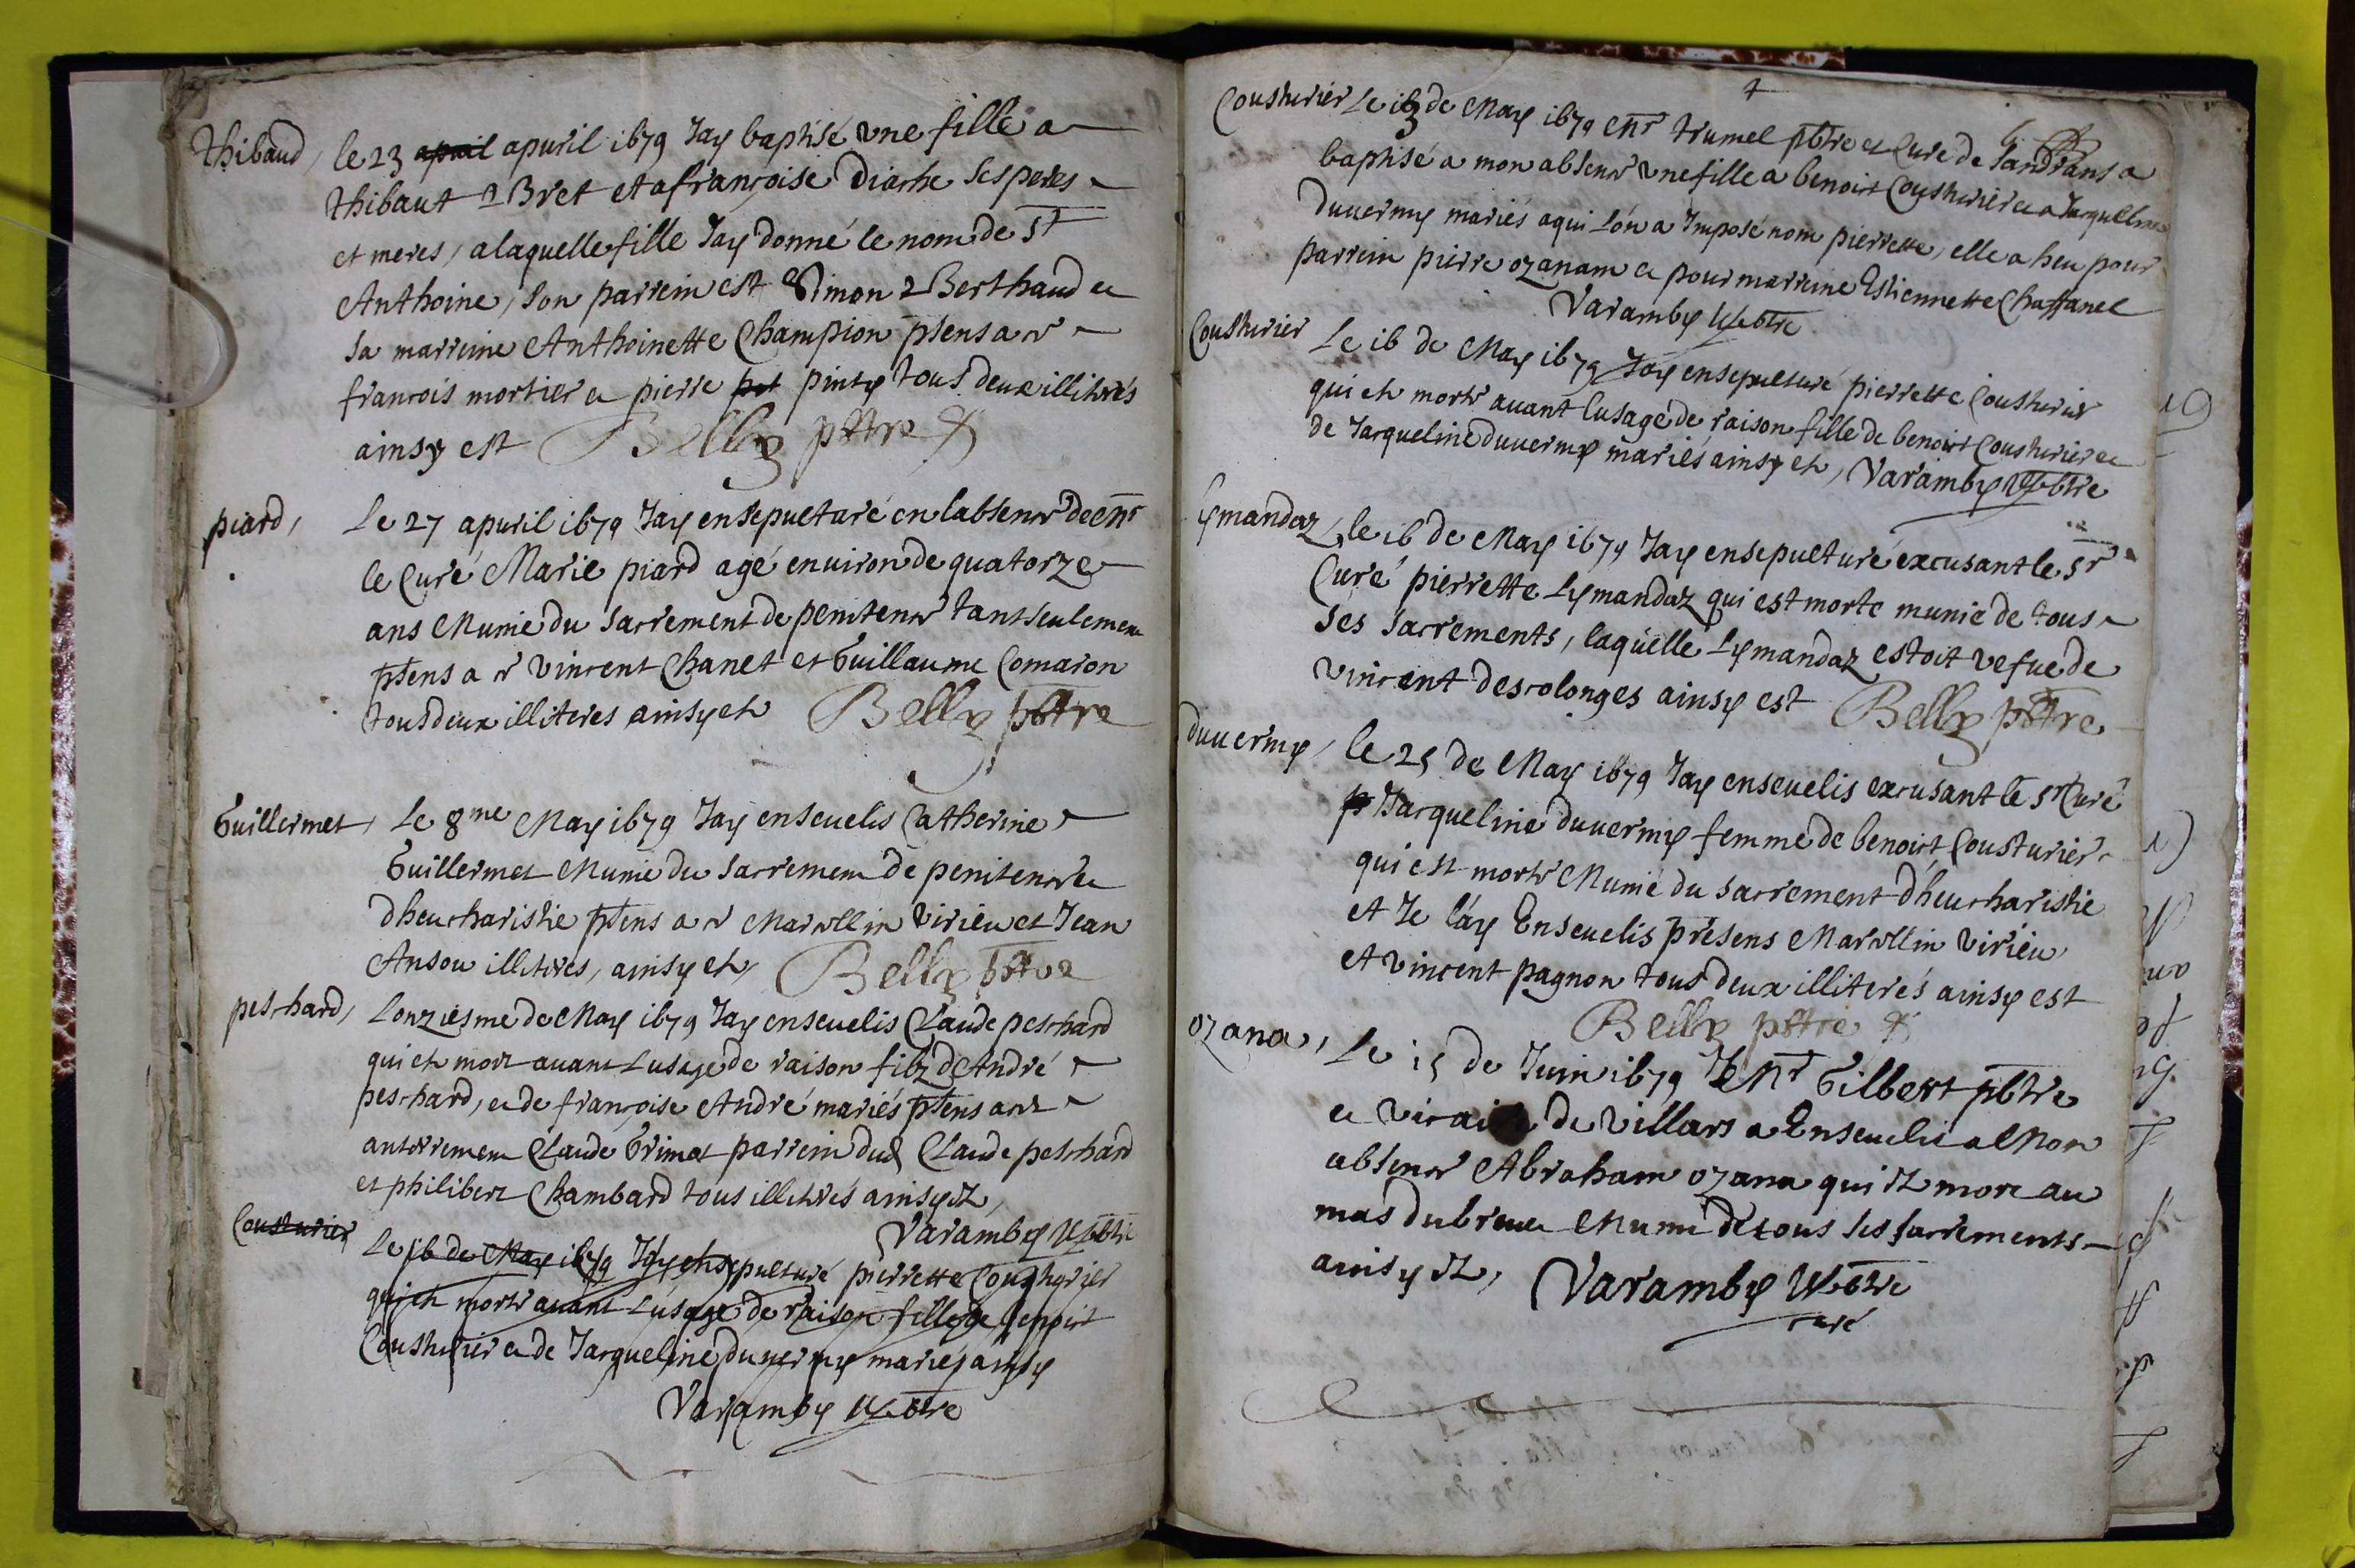 Thibaud, le 23 apuril apuril 1679 Jay baptisé vne fille a
Thibaut Bret et a françoise Diache ses peres
et meres, a laquelle fille Jay donné le nom de st
Anthoine, son parrein est Simon Berthaud et
sa marreine Anthoinette Champion pnts a ce
francois mortier et pierre pinty tous deux illiterés
ainsy est Belly pbtre
piard, Le 27 apuril 1679 Jay ensepulturé en labsence de mr
le Curé Marie piard agé enuiron de quatorze
ans Munie du sacrement de penitence tant seulement
pntens a ce vincent Chanet et Guillaume Comaron
tous deux illiteres ainsy est Belly pbtre
Guillermet, Le 8me May 1679 Jay enseuelis Catherine
Guillermet Munie du sacrement de penitence et
dheucharistie pntens a ce Marcellin Virieu et Jean
Ansou illiteres, ainsy est, Belly pbtre
peschard, Lonziesme de May 1679 Jay enseuelis Claude peschard
qui est mort auant Lusage de raison filz de André
peschard, et de françoise André mariés pntens au dt
anterrement Claude Grimet parrein dud Claude peschard
et philibert Chambard tous illiterés ainsy est,
Varamby pbtre
Cousturier Le 16 de May 1679 Jay ensepulturé pierrette Cousturier
qui est morte auant Lusage de raison fille de benoist
Cousturier et de Jacqueline duuerny mariés ainsy
Varamby pbtre
Cousturier Le 13 de May 1679 mr trumel pbtre et Curé de Sandrans a
baptisé a mon absence vne fille a benoist Cousturier et a Jacqueline
duuerny mariés a qui Lón a Imposé nom pierrette, elle a heu pour
parrein pierre ozanam et pour marreine Estiennette Chaffanel
Varamby pbtre
Cousturier Le 16 de May 1679 Jay ensepulturé pierrette Cousturier
qui est morte auant Lusage de raison fille de benoist Cousturier et
de Jacqueline duuerny mariés ainsy est, Varamby pbtre
Lymandaz, le 16 de May 1679 Jay ensepulturé excusant le sr
Curé pierrette Lymandaz qui est morte munie de tous
ses sacrements, laquelle Lymandaz estoit vefue de
vincent descolonges ainsy est Belly pbtre
duuerny, le 25 de May 1679 Jay enseuelis excusant le sr Curé
p Jacqueline duuerny femme de benoist Cousturier
qui est morte Munie du sacrement dheucharistie
et Je láy Enseuelis présens Marcellin Virieu
et vincent pagnon tous deux illiterés ainsy est
Belly pbtre
ozana, Le 15 de Juin 1679 mr Gilbert pbtre
et vicaire de Villars a Enseueli a Mon
absence Abraham ozana qui est mort au
mas dubreuer Muni de tous ses sacrements
ainsy est, Varamby pbtre
curé